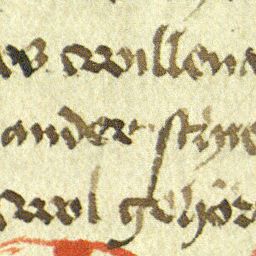 willen
ander stÿe
wol gehör